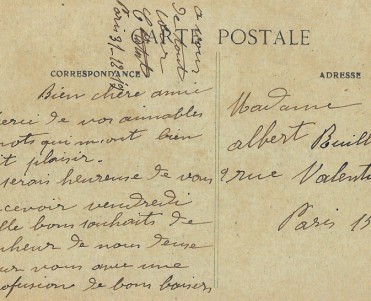 à vous
de tout
cœur
Paris 31-12-19
CARTE POSTALE
CORRESPONDANCE
ADRESSE
Bien chère amie
erci de vos aimables
mots qui m'ont bien
it plaisir.
serais heureuse de vous
cevoir vendredi
lle bons souhaits de
nheur de nous deux
ur vous avec une
ofusion de bons baisers
Madame
albert Bouill
9 rue Valenti
Paris 15